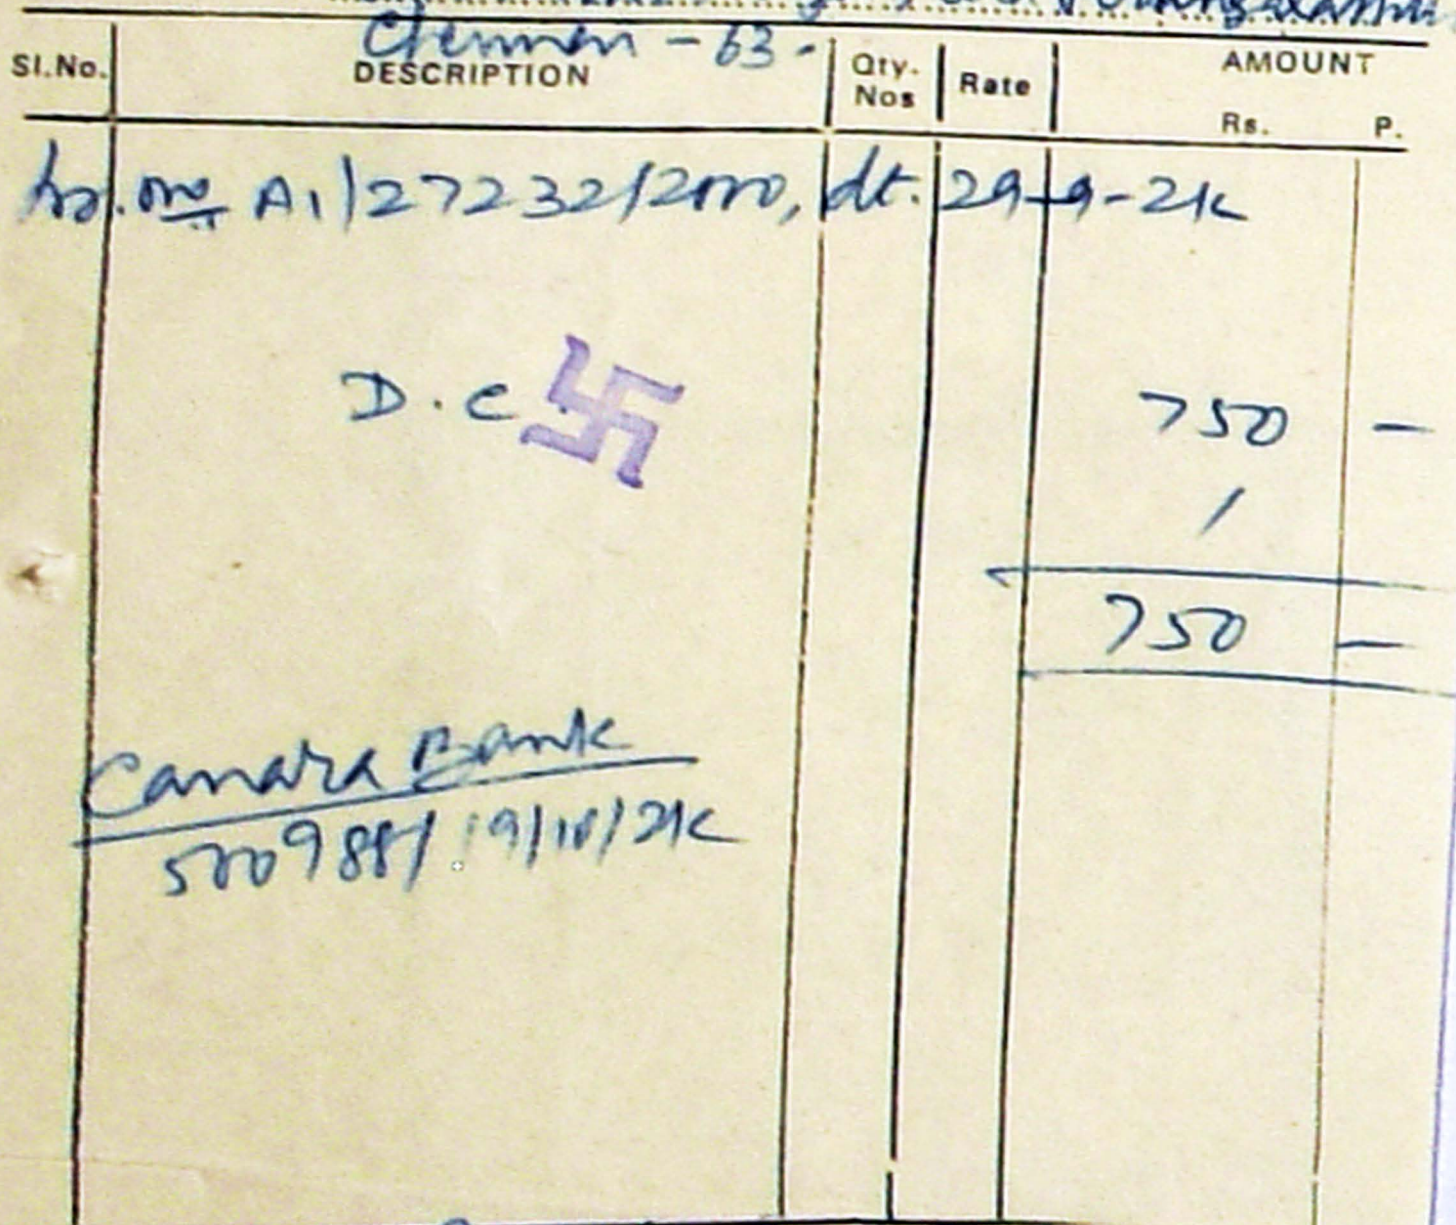 Chennai - 63 -
Sl.No. DESCRIPTION Qty. Nos Rate AMOUNT Rs. P.
no A1/27232/2000, dt. 29-9-2K
D.C. 750 -
/
750 -
Canara Bank
500988/ 19/10/2K